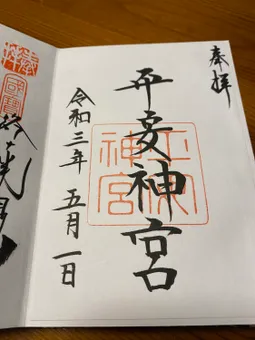 奉拝
平安神宮
平安神宮
令和三年五月一日
奉拝
國寶